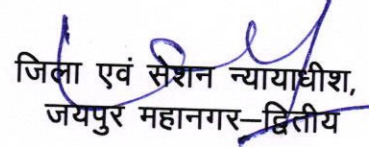 जिला एवं सेशन न्यायाधीश,
जयपुर महानगर–द्वितीय